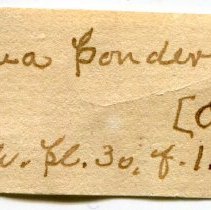 ua ponder
[C
. pl. 30, f. 1.